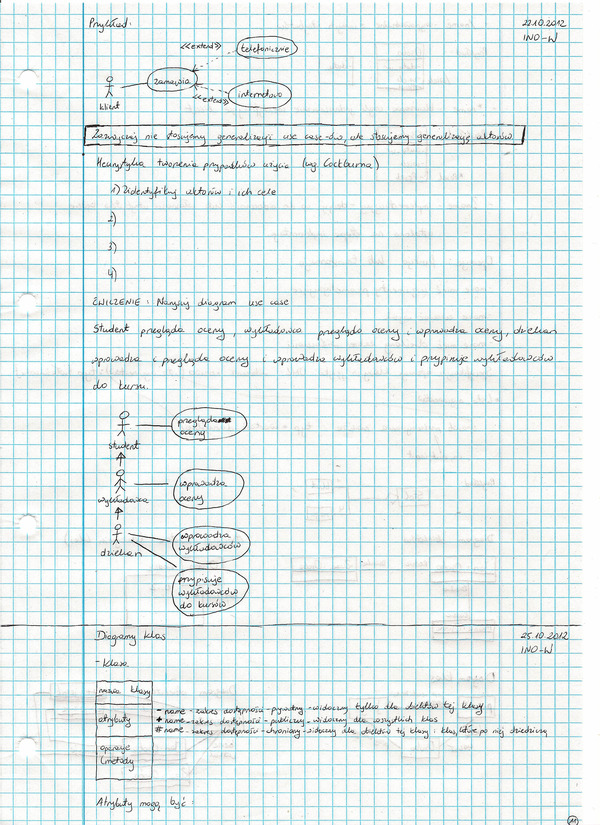 Przykład:
22.10.2012
INO-W
<<extend>>
telefonicznie
zamawia
klient
<<extend>>
internetowo
Zazwyczaj nie stosujemy generalizacji use case-ów, ale stosujemy generalizację aktorów
Heurystyka tworzenia przypadków użycia (wg. Cockburna)
1) Zidentyfikuj aktorów i ich cele
2)
3)
4)
ĆWICZENIE: Narysuj diagram use case
Student przegląda oceny, wykładowca przegląda oceny i wprowadza oceny, dziekan
wprowadza i przegląda oceny i wprowadza wykładowców i przypisuje wykładowców
do kursu.
przegląda
oceny
student
wprowadza
oceny
wykładowca
wprowadza
wykładowców
dziekan
przypisuje
wykładowców
do kursów
Diagramy klas
25.10.2012
INO-W
- Klasa
nazwa klasy
atrybuty
- name - zakres dostępności - prywatny - widoczny tylko dla obiektów tej klasy
+ name - zakres dostępności - publiczny - widoczny dla wszystkich klas
# name - zakres dostępności - chroniony - widoczny dla obiektów tej klasy i klas, które po niej dziedziczą
operacje
(metody)
Atrybuty mogą być:
11